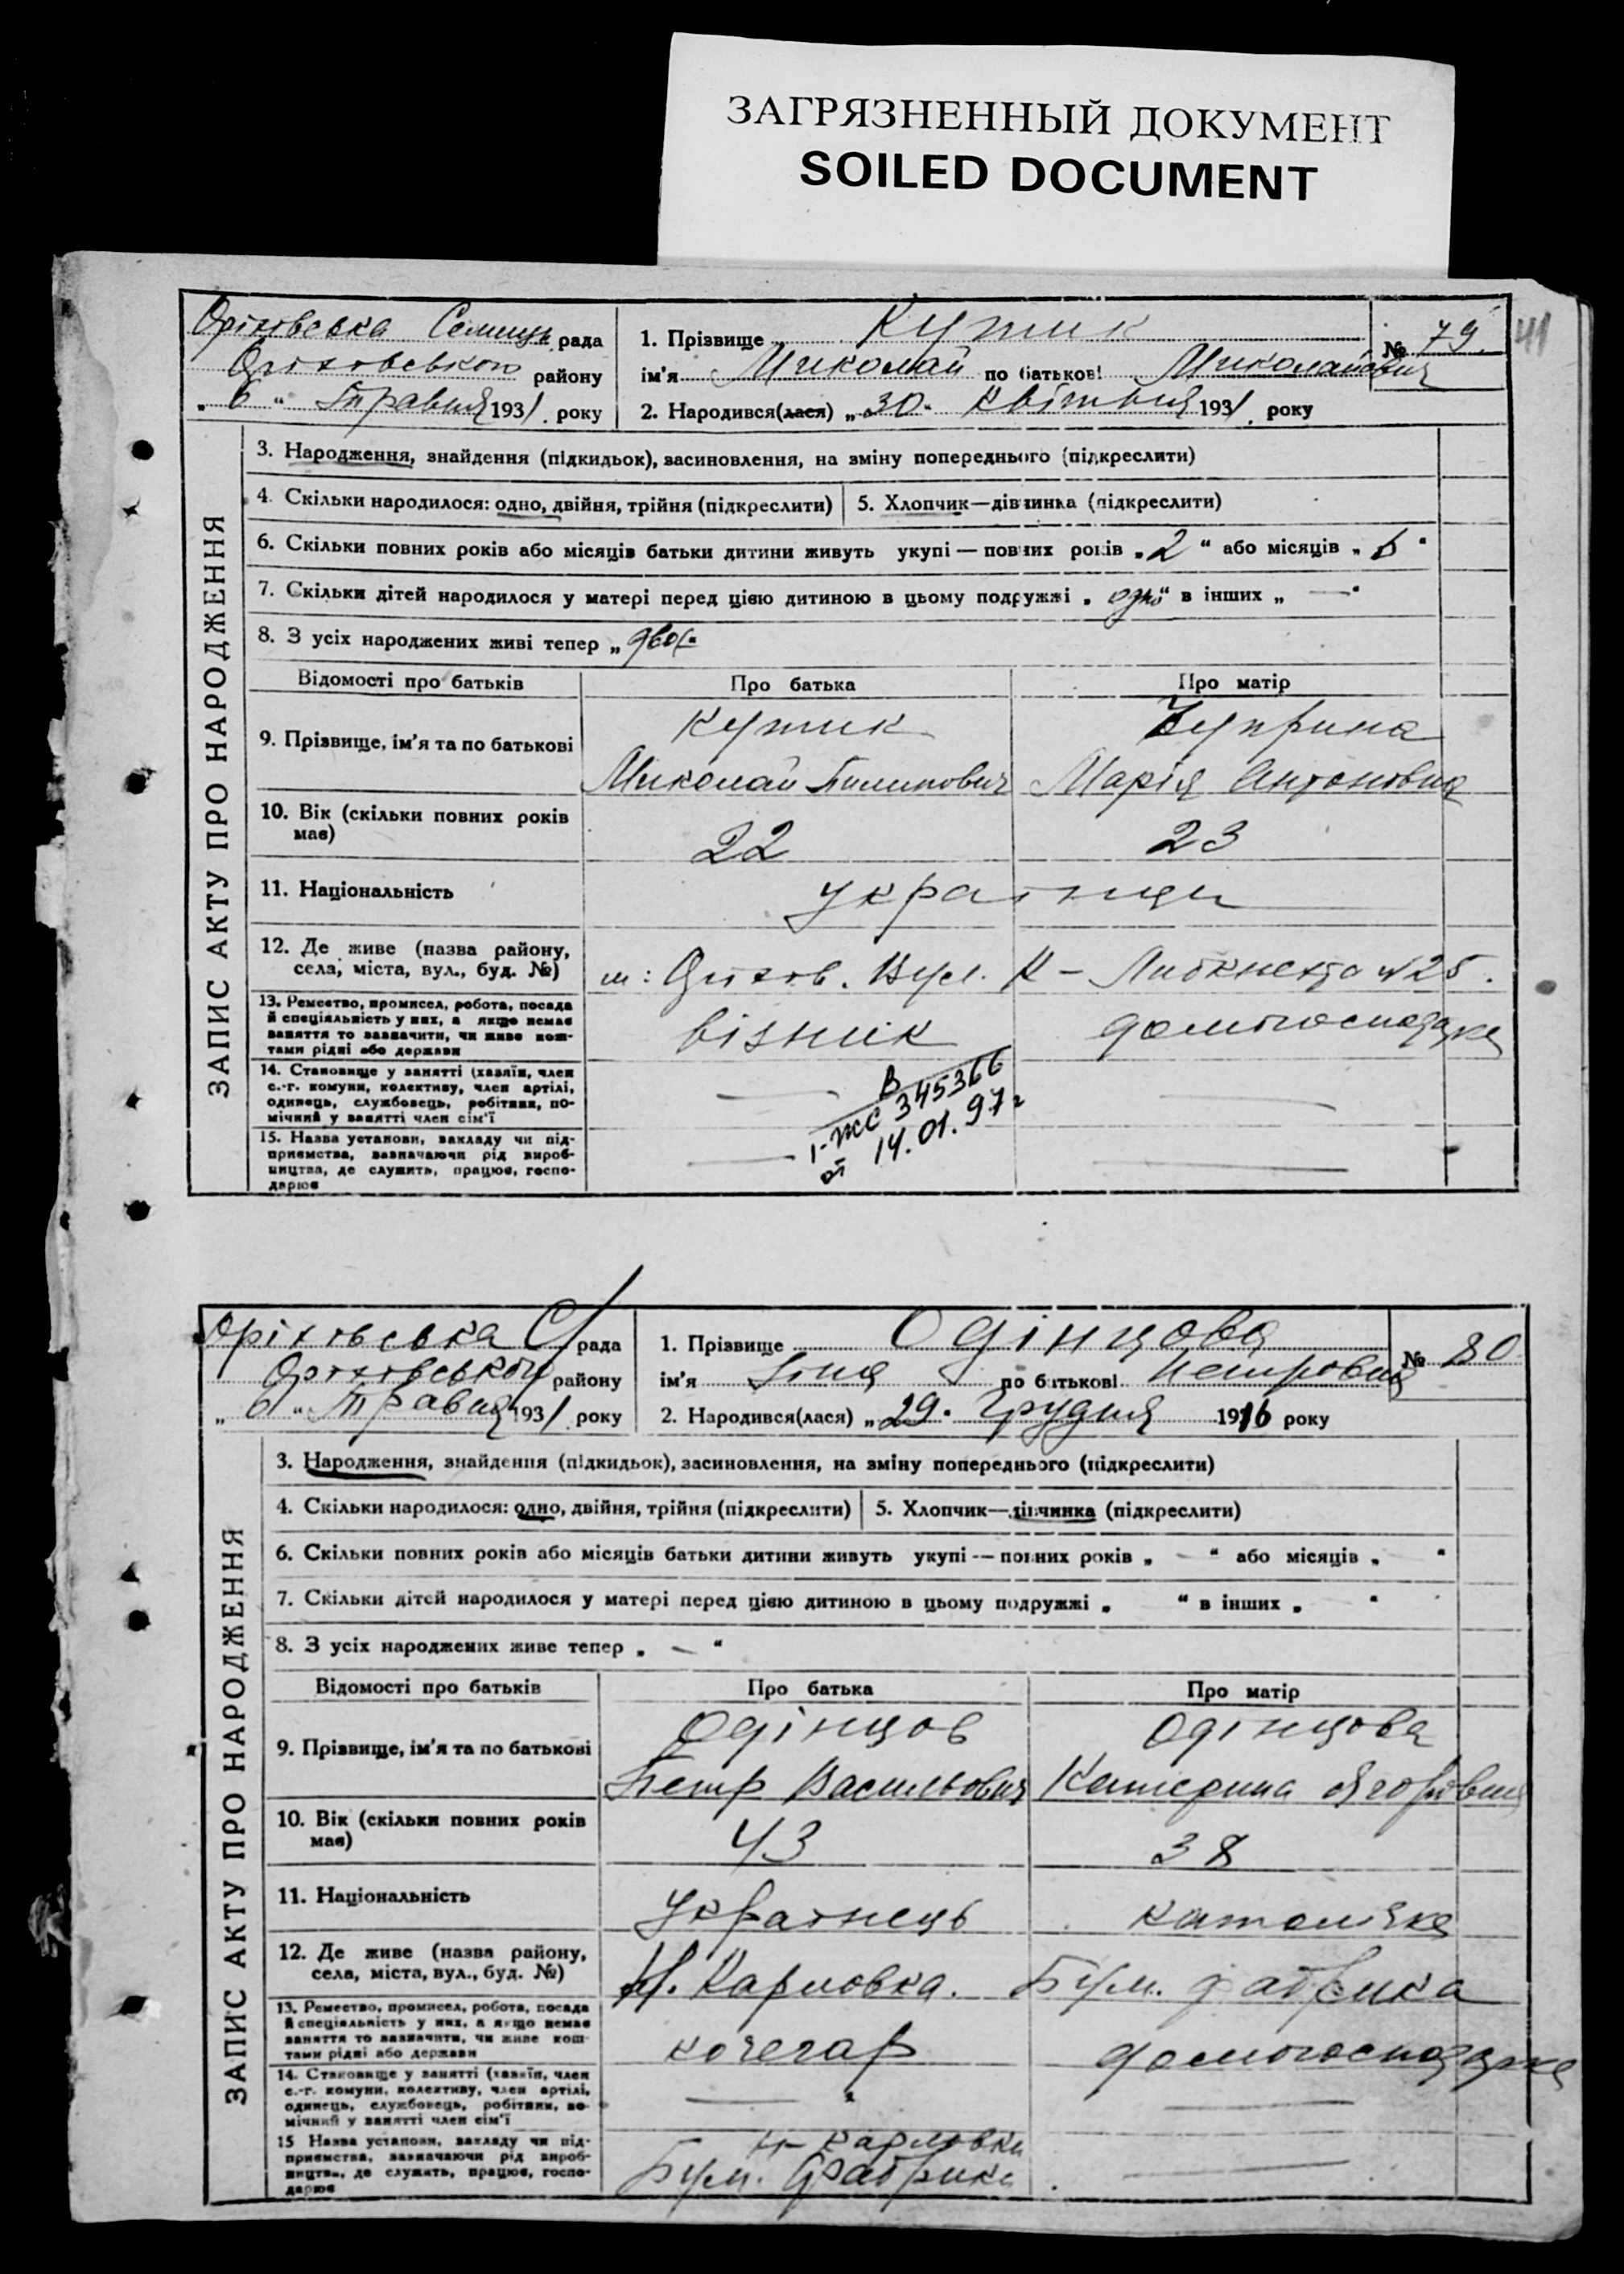 ЗАГРЯЗНЕННЫЙ ДОКУМЕНТ
SOILED DOCUMENT
41
Оріхівська рада
Оріховського району
„ 6 “ Травня 1931 року
1. Прізвище Кутик
№ 79
ім'я Миколай по батькові Миколайович
2. Народився(лася) „ 30 “ квітня 1931 року
ЗАПИС АКТУ ПРО НАРОДЖЕННЯ
3. Народження, знайдення (підкидьок), засиновлення, на зміну попереднього (підкреслити)
4. Скільки народилося: одно, двійня, трійня (підкреслити)
5. Хлопчик—дівчинка (підкреслити)
6. Скільки повних років або місяців батьки дитини живуть укупі — повних років „ 2 “ або місяців „ 6 “
7. Скільки дітей народилося у матері перед цією дитиною в цьому подружжі „ одно “ в інших „ — “
8. З усіх народжених живі тепер „ двоє “
Відомості про батьків Про батька Про матір
9. Прізвище, ім'я та по батькові
Кутик Чуприна
Миколай Марія Антоновна
10. Вік (скільки повних років має)
22 23
11. Національність українци
12. Де живе (назва району, села, міста, вул., буд. №)
м: Оріхов. Вул. К - Либкнехта №25.
13. Ремество, промисел, робота, посада
й спеціальність у них, а якщо немає
заняття то зазначити, чи живе кош-
тами рідні або держави
візник домогосподарка
14. Становище у занятті (хазяїн, член
с.-г. комуни, колективу, член артілі,
одинець, службовець, робітник, по-
мічний у занятті член сім'ї
— —
15. Назва установи, закладу чи під-
приємства, зазначаючи рід вироб-
ництва, де служить, працює, госпо-
дарює
— —
В
I-ЖС 345366
от 14.01.97г
Оріхівська С/рада
Оріхівського району
„ 6 “ Травня 1931 року
1. Прізвище Одінцова
№ 80
ім'я Зіна по батькові Петровна
2. Народився(лася) „ 29 “ Грудня 1916 року
ЗАПИС АКТУ ПРО НАРОДЖЕННЯ
3. Народження, знайдення (підкидьок), засиновлення, на зміну попереднього (підкреслити)
4. Скільки народилося: одно, двійня, трійня (підкреслити)
5. Хлопчик—дівчинка (підкреслити)
6. Скільки повних років або місяців батьки дитини живуть укупі — повних років „ — “ або місяців „ “
7. Скільки дітей народилося у матері перед цією дитиною в цьому подружжі „ “ в інших „ “
8. З усіх народжених живе тепер „ — “
Відомості про батьків Про батька Про матір
9. Прізвище, ім'я та по батькові
Одінцов Одінцова
Петр Васильович Катерина Ягорівна
10. Вік (скільки повних років має)
43 38
11. Національність
Українець католічка
12. Де живе (назва району, села, міста, вул., буд. №)
Н. Карловка. Бум. фабрика
13. Ремество, промисел, робота, посада
й спеціальність у них, а якщо немає
заняття то зазначити, чи живе кош-
тами рідні або держави
кочегар домогосподарка
14. Становище у занятті (хазяїн, член
с.-г. комуни, колективу, член артілі,
одинець, службовець, робітник, по-
мічний у занятті член сім'ї
— —
15 Назва установи, закладу чи під-
приємства, зазначаючи рід вироб-
ництва, де служить, працює, госпо-
дарює
Н-Карловка
Бум. Фабрика —